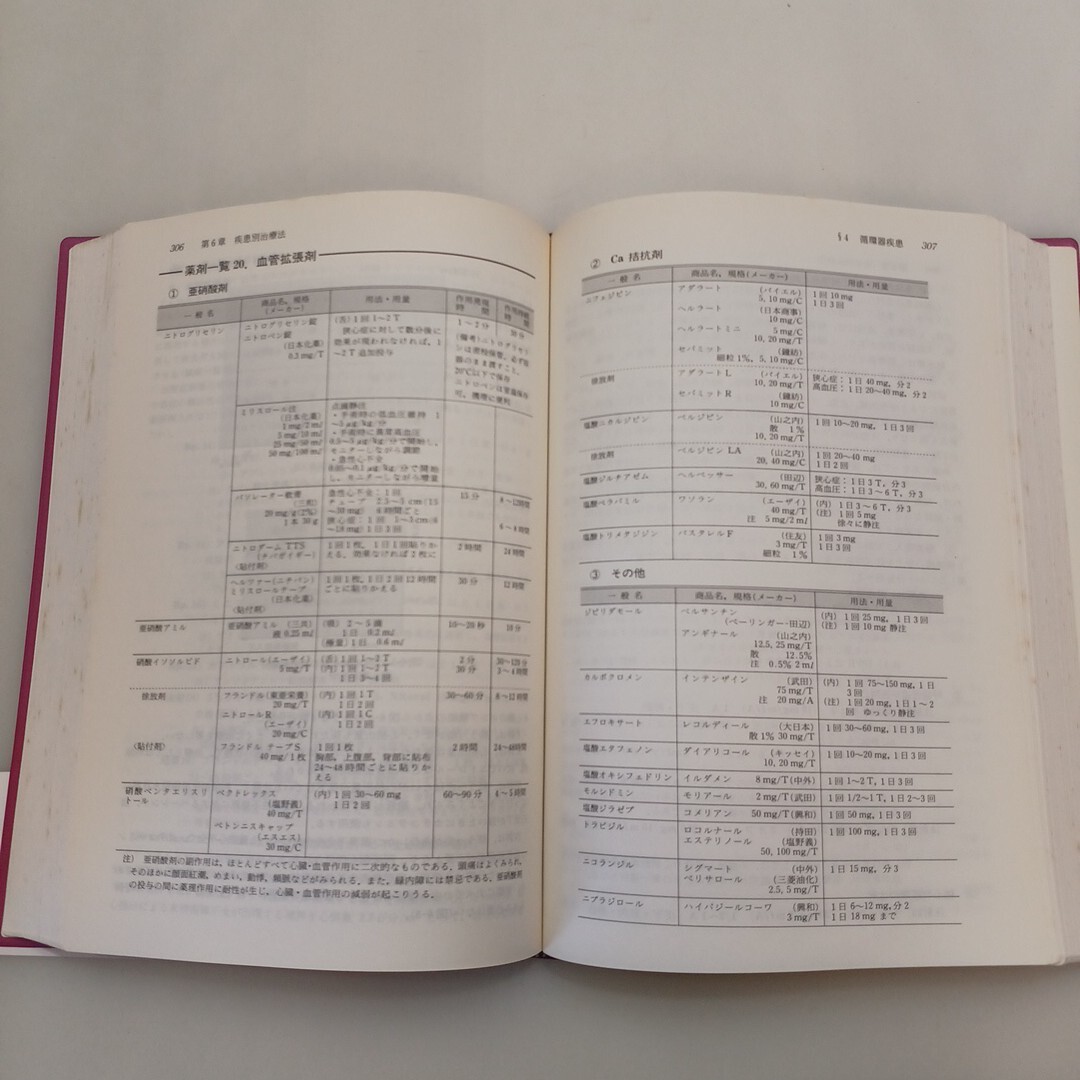 306 第6章 疾患別治療法
薬剤一覧20. 血管拡張剤
① 亜硝酸剤
一般名 商品名、規格(メーカー) 用法・用量 作用発現時間 作用持続時間
ニトログリセリン ニトログリセリン錠 (舌)1回1〜2T 1〜2分 30分
ニトロペン錠 狭心症に対して数分後に
(日本化薬) 効果が現われなければ、1
0.3 mg/T 〜2T追加投与
20℃以下で保存
ミリスロール注 点滴静注
(日本化薬) ・手術時の低血圧維持 1
1 mg/2 ml 〜5 μg/kg/分
5 mg/10 ml ・手術時に異常高血圧
25 mg/50 ml 0.5〜5 μg/kg/分で開始し、
50 mg/100 ml モニターしながら調節
・急性心不全
0.05〜0.1 μg/kg/分で開始
し、モニターしながら増量
バソレーター軟膏 急性心不全:1回 15分
(三和) チューブ 2.5〜5 cm(15
20 mg/g(2%) 〜30 mg) 8時間ごと
1本 30 g 狭心症:1回 6〜8時間
1日3回
ニトロダームTTS 1回1枚、1日1回貼りか 2時間 24時間
(チバガイギー) える。効果なければ2枚に
〈貼付剤〉
ヘルツァー(ニチバン) 1回1枚、1日2回12時間 30分 12時間
ミリスロールテープ ごとに貼りかえる
(日本化薬)
〈貼付剤〉
亜硝酸アミル 亜硝酸アミル(三共) 2〜5滴 10〜20秒 10分
液 0.25 ml 1日 0.2 ml
(極量)1日 0.6 ml
硝酸イソソルビド ニトロール(エーザイ) (舌)1回1〜2T 2分 30〜120分
5 mg/T (内)1回1〜2T 30分 3〜4時間
1日3〜4回
徐放剤 フランドル(東亜栄養) (内)1回1T 30〜60分 8〜12時間
20 mg/T 1日2回
ニトロールR (内)1回1C
(エーザイ) 1日2回
20 mg/C
〈貼付剤〉 フランドル テープS 1回1枚 2時間 24〜48時間
40 mg/1枚 胸部、上腹部、背部に貼布
24〜48時間ごとに貼りか
える
硝酸ペンタエリスリトール ペクトレックス (内)1回30〜60 mg 60〜90分 4〜5時間
(塩野義) 1日2回
40 mg/T
ペトンニスキャップ
(エスエス)
30 mg/C
注) 亜硝酸剤の副作用は、ほとんどすべて心臓・血管作用に二次的なものである。頭痛はよくみられ、
そのほかに顔面紅潮、めまい、動悸、頻脈などがみられる。また、緑内障には禁忌である。亜硝酸剤
の投与の間に薬理作用に耐性が生じ、心臓・血管作用の減弱が起こりうる。
§4 循環器疾患 307
② Ca 拮抗剤
一般名 商品名、規格(メーカー) 用法・用量
ニフェジピン アダラート (バイエル) 1回10 mg
5, 10 mg/C 1日3回
ヘルラート (日本商事)
10 mg/C
ヘルラートミニ 5 mg/C
10, 20 mg/T
セパミット (鐘紡)
細粒1%, 5, 10 mg/C
徐放剤 アダラートL (バイエル) 狭心症:1日40 mg, 分2
10, 20 mg/T 高血圧:1日20〜40 mg, 分2
セパミットR (鐘紡)
10 mg/C
塩酸ニカルジピン ペルジピン (山之内) 1回10〜20 mg, 1日3回
散 1%
10, 20 mg/T
徐放剤 ペルジピンLA (山之内) 1回20〜40 mg
20, 40 mg/C 1日2回
塩酸ジルチアゼム ヘルベッサー (田辺) 狭心症:1日3T, 分3
30, 60 mg/T 高血圧:1日3〜6T, 分3
塩酸ベラパミル ワソラン (エーザイ) (内) 1日3〜6T, 分3
40 mg/T (注) 1回5 mg
注 5 mg/2 ml 徐々に静注
塩酸トリメタジジン バスタレルF (住友) 1回3 mg
3 mg/T 1日3回
細粒 1%
③ その他
一般名 商品名、規格(メーカー) 用法・用量
ジピリダモール ペルサンチン (内) 1回25 mg, 1日3回
(ベーリンガー・田辺) (注) 1回10 mg 静注
アンギナール (山之内)
12.5, 25 mg/T
散 12.5%
注 0.5% 2 ml
カルボクロメン インテンザイン (武田) (内) 1回75〜150 mg, 1日
75 mg/T 3回
注 20 mg/A (注) 1回20 mg, 1日1〜2
回 ゆっくり静注
エフロキサート レコルディール (大日本) 1回30〜60 mg, 1日3回
散1% 30 mg/T
塩酸エタフェノン ダイアリコール (キッセイ) 1回10〜20 mg, 1日3回
10, 20 mg/T
塩酸オキシフェドリン イルダメン 8 mg/T(中外) 1回1〜2T, 1日3回
モルシドミン モリアール 2 mg/T(武田) 1回1/2〜1T, 1日2〜3回
塩酸ジラゼプ コメリアン 50 mg/T(興和) 1回50 mg, 1日3回
トラピジル ロコルナール (持田) 1回100 mg, 1日3回
エステリノール (塩野義)
50, 100 mg/T
ニコランジル シグマート (中外) 1日15 mg, 分3
ペリサロール (三菱油化)
2.5, 5 mg/T
ニプラジロール ハイパジールコーワ (興和) 1日6〜12 mg, 分2
3 mg/T 1日18 mgまで